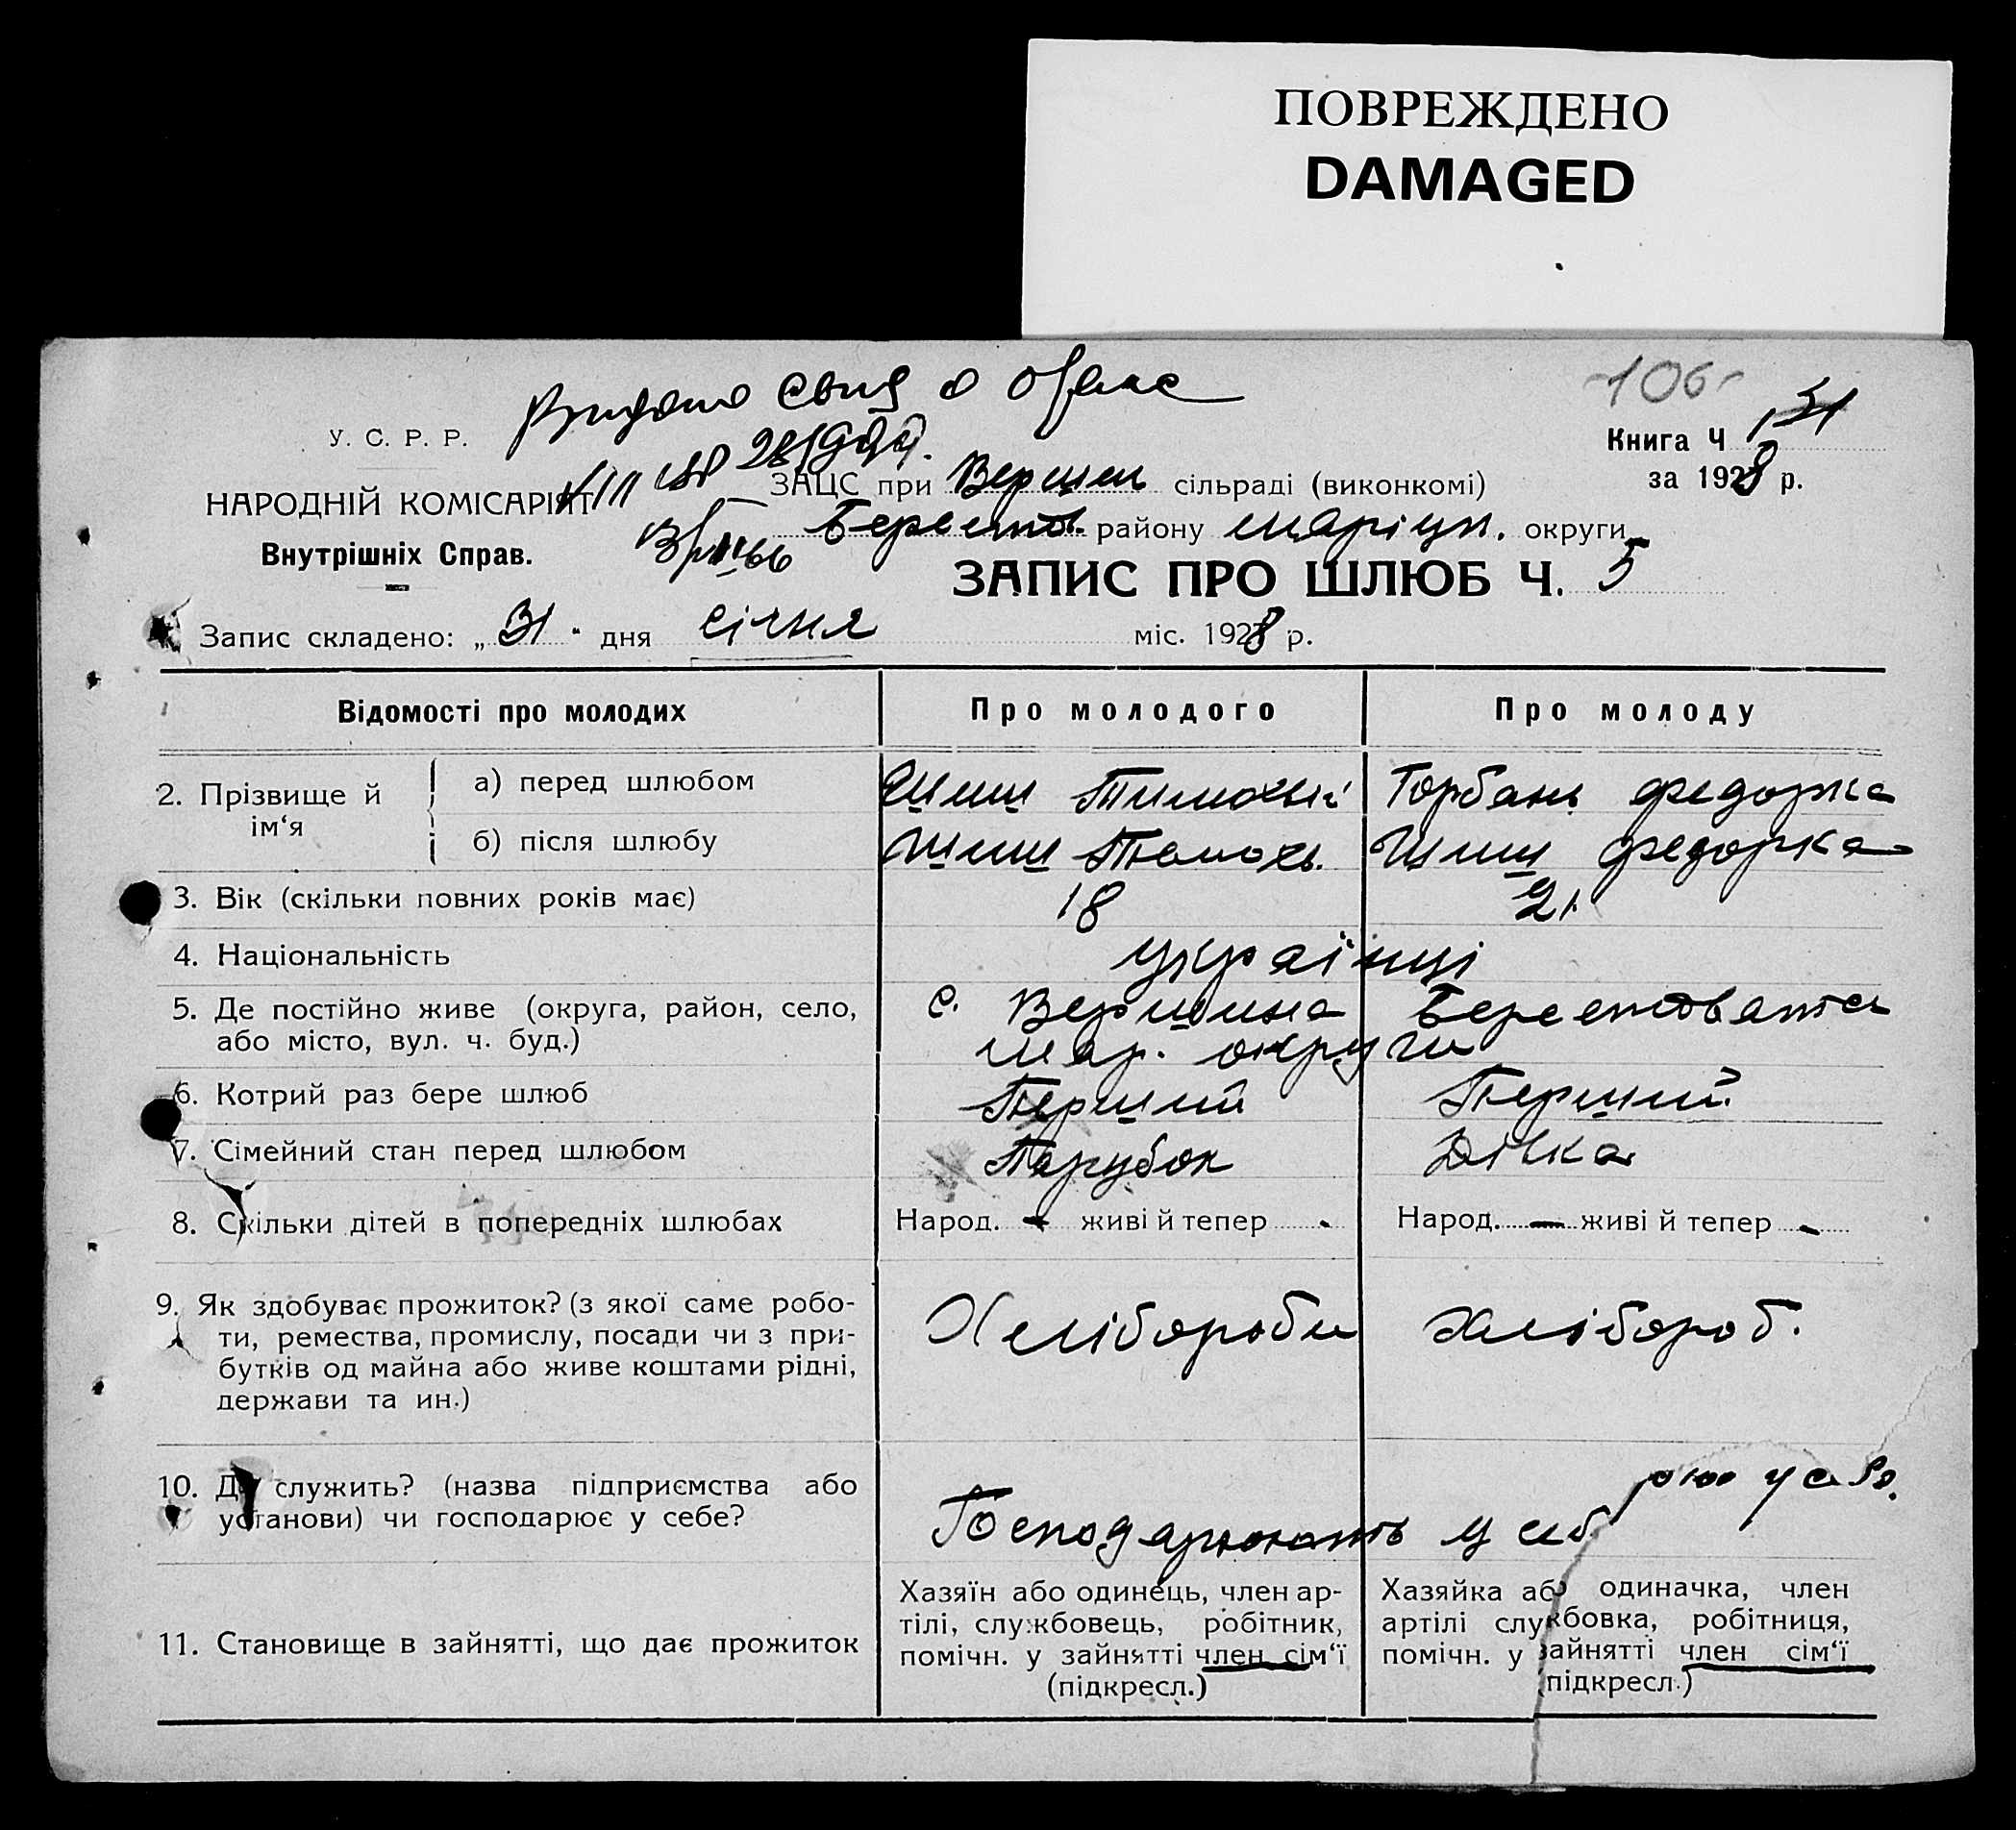 ПОВРЕЖДЕНО
DAMAGED
-106-
Видано свид о
У. С. Р. Р.
Книга Ч
ЗАЦС при Верши сільраді (виконкомі)
за 1928 р.
НАРОДНІЙ КОМІСАРІЯТ
Берестов. району Маріуп. округи
Внутрішніх Справ.
ЗАПИС ПРО ШЛЮБ Ч. 5
Запис складено: „ 31 " дня січня міс. 1928 р.
Відомості про молодих Про молодого Про молоду
2. Прізвище й ім‘я
а) перед шлюбом Шиш Тимохвій Горбань Федорка
б) після шлюбу Шиш Тимохв. Шиш Федорка
3. Вік (скільки повних років має) 18 21
4. Національність українці
5. Де постійно живе (округа, район, село, с. Вершина Берестоват
або місто, вул. ч. буд.) Мар. округи
6. Котрий раз бере шлюб Перший Перший
7. Сімейний стан перед шлюбом Парубок Дівка
8. Скільки дітей в попередніх шлюбах Народ. - живі й тепер - Народ. - живі й тепер -
9. Як здобуває прожиток? (з якої саме робо-
ти, ремества, промислу, посади чи з при- Хлібороби Хлібороб.
бутків од майна або живе коштами рідні,
держави та ин.)
10. Де служить? (назва підприємства або
установи) чи господарює у себе? Господарюють у себ
11. Становище в зайнятті, що дає прожиток
Хазяїн або одинець, член ар-
тілі, службовець, робітник,
помічн. у зайнятті член сім‘ї
(підкресл.)
Хазяйка або одиначка, член
артілі службовка, робітниця,
помічн. у зайнятті член сім‘ї
(підкресл.)